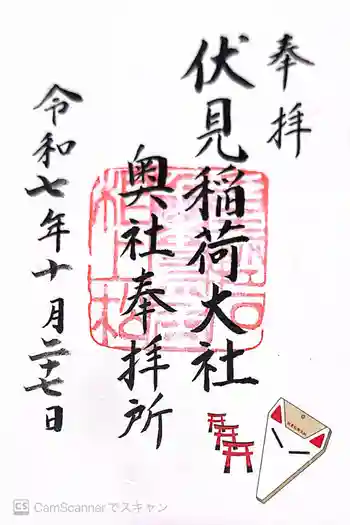 奉拝
伏見稲荷大社
奥社奉拝所
令和七年十月二十七日
CS CamScannerでスキャン